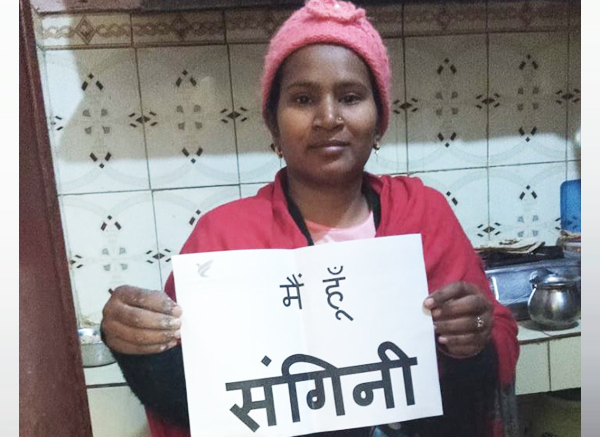 मैं हूँ
संगिनी